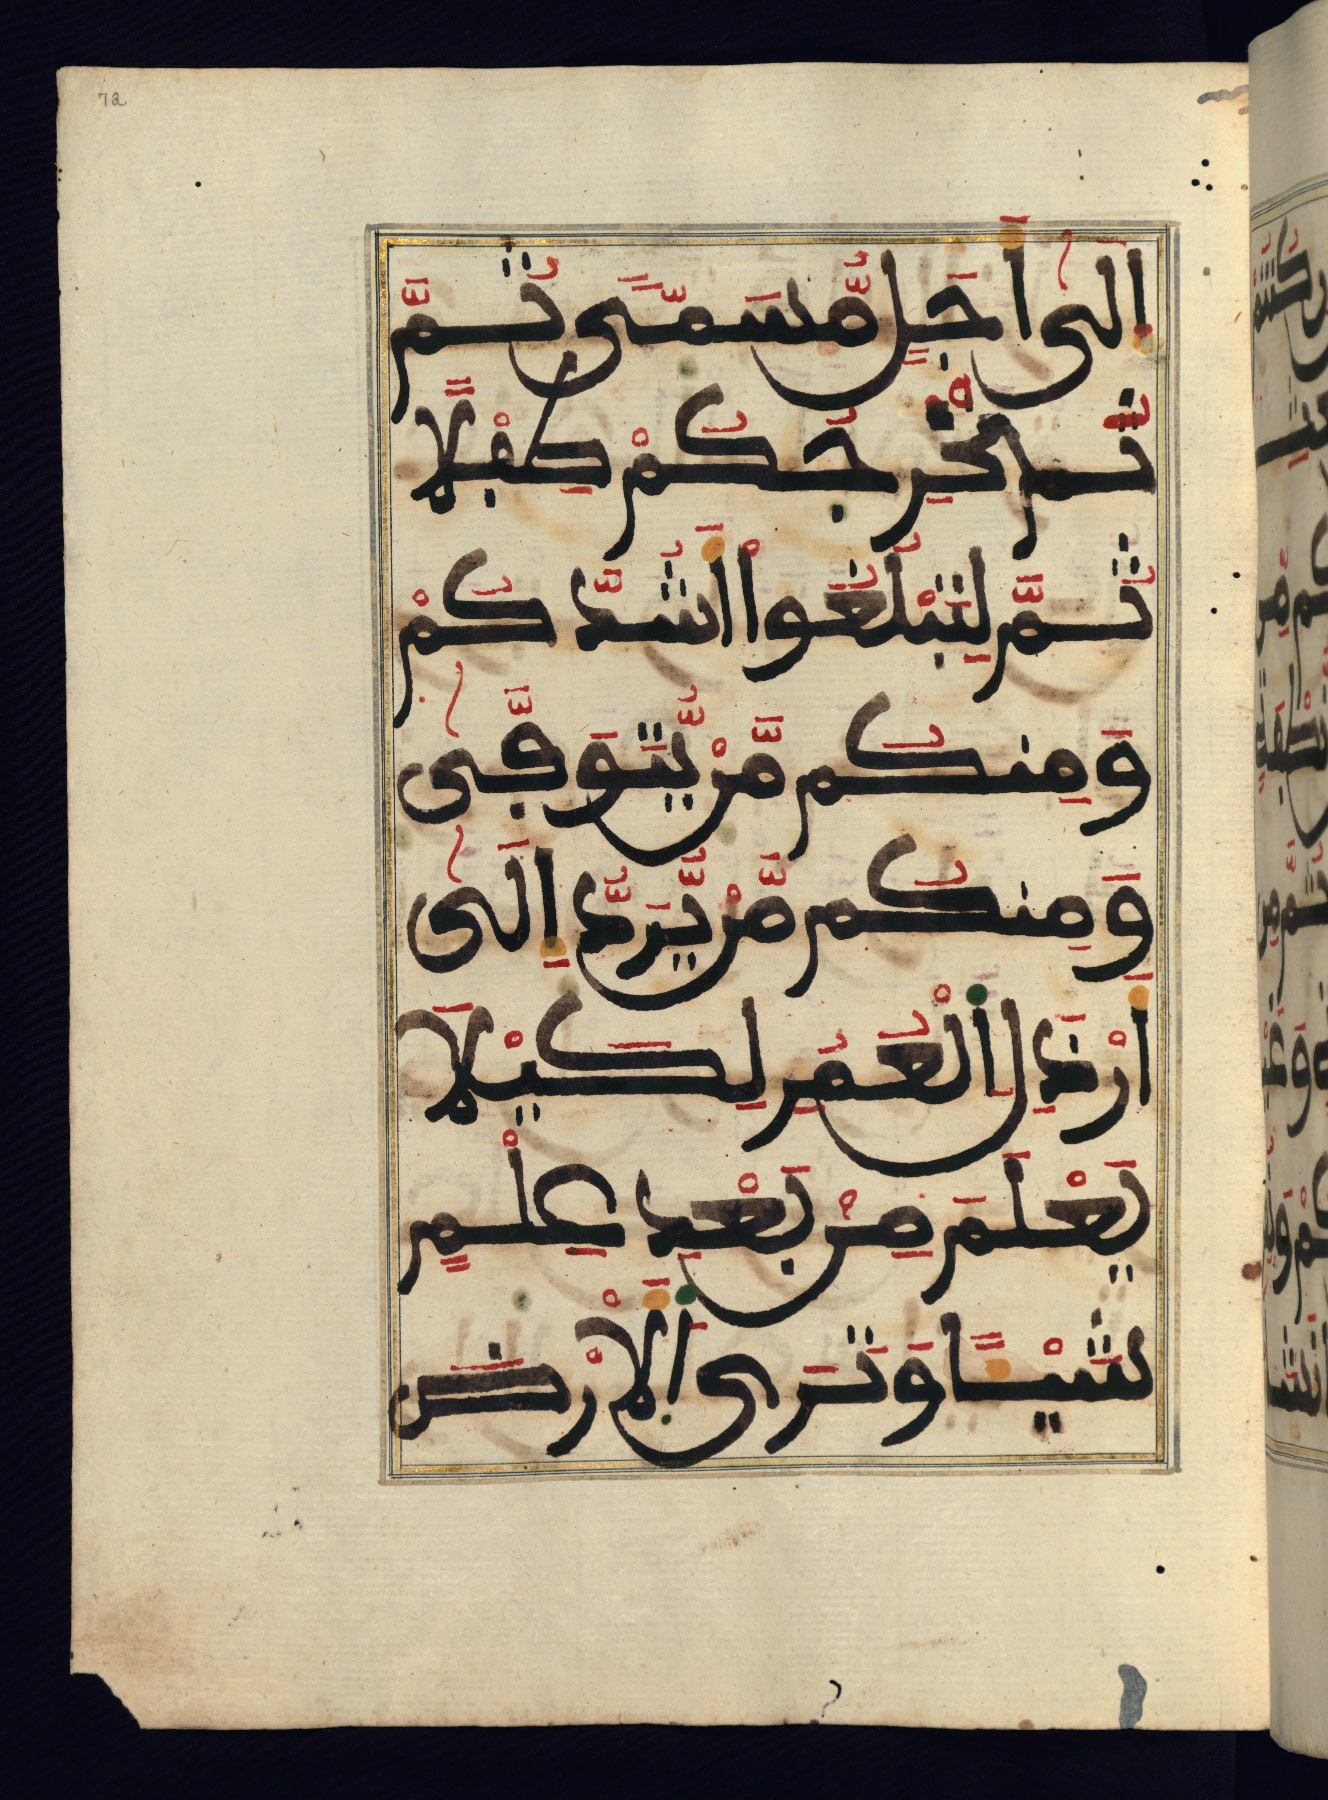 72
اِلَىٰ أَجَلٖ مُّسَمّٗى ثُمَّ
ثُمَّ نُخْرِجُكُمْ طِفْلاٗ
ثُمَّ لِتَبْلُغُوٓاْ أَشُدَّكُمْ
وَمِنكُم مَّنْ يُّتَوَفَّىٰ
وَمِنكُم مَّنْ يُّرَدُّ إِلَىٰٓ
أَرْذَلِ اِ۬لْعُمُرِ لِكَيْلَا
يَعْلَمَ مِنۢ بَعْدِ عِلْمٖ
شَيْـٔاٗ وَتَرَى اَ۬لْأَرْضَ